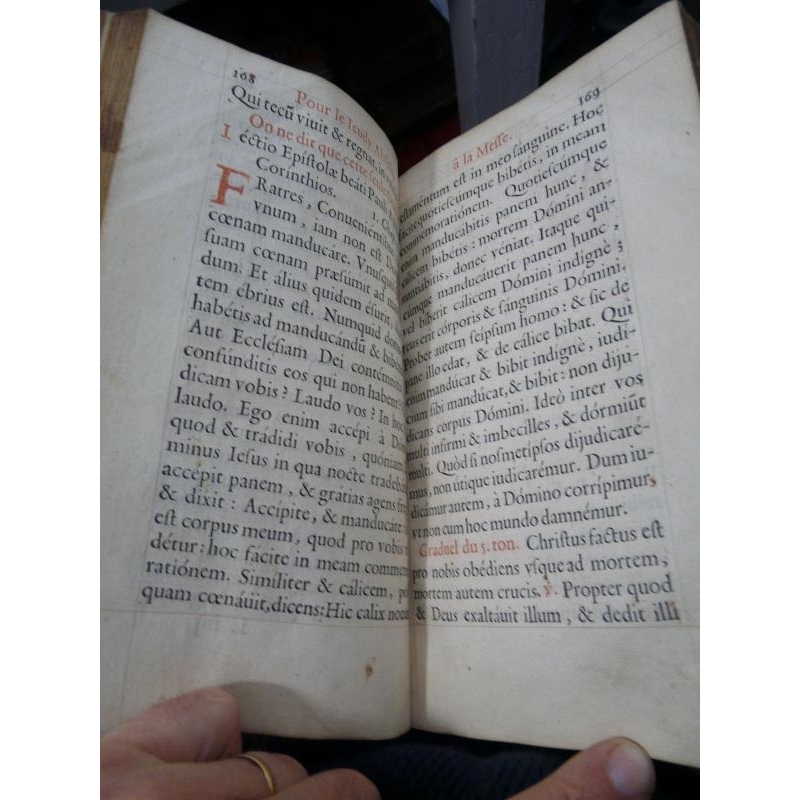 168
Pour le Ieudy
Qui tecũ viuit & regnat, in
On ne dit que cette seule
Léctio Epístolæ beáti Pauli
Corínthios. 1.
FRatres, Conueniéntibus
vnum, iam non est Do
cœnam manducáre. Vnusquis
suam cœnam præsumit ad man
dum. Et alius quidem ésurit,
tem ébrius est. Numquid domos
habétis ad manducándũ & bibén
Aut Ecclésiam Dei contémnitis
confúnditis eos qui non habent?
dicam vobis? Laudo vos? In hoc
laudo. Ego enim accépi à Dó
quod & trádidi vobis, quóniam
minus Iesus in qua nocte tradebá
accépit panem, & grátias agens fre
& dixit: Accípite, & manducáte:
est corpus meum, quod pro vobis t
détur: hoc fácite in meam commem
ratiónem. Simíliter & cálicem, po
quam cœnáuit, dicens: Hic calix nouum
169
à la Messe.
estaméntum est in meo sánguine. Hoc
fácite quotiescúmque bibétis, in meam
commemoratiónem. Quotiescúmque
enim manducábitis panem hunc, &
cálicem bibétis: mortem Dómini an-
nuntiábitis, donec véniat. Itaque qui-
cúmque manducáuerit panem hunc,
vel bíberit cálicem Dómini indignè;
reus erit córporis & sánguinis Dómini.
Probet autem seípsum homo: & sic de
pane illo edat, & de cálice bibat. Qui
enim mandúcat & bibit indignè, iudí-
cium sibi mandúcat, & bibit: non diju-
dícans corpus Dómini. Ideò inter vos
multi infírmi & imbecílles, & dórmiũt
multi. Quòd si nosmetípsos dijudicaré-
mus, non útique iudicarémur. Dum iu-
dicámur autem, à Dómino corrípimur,
vt non cum hoc mundo damnémur.
Graduel du 5. ton. Christus factus est
pro nobis obédiens vsque ad mortem,
mortem autem crucis. ℣. Propter quod
& Deus exaltáuit illum, & dedit illi